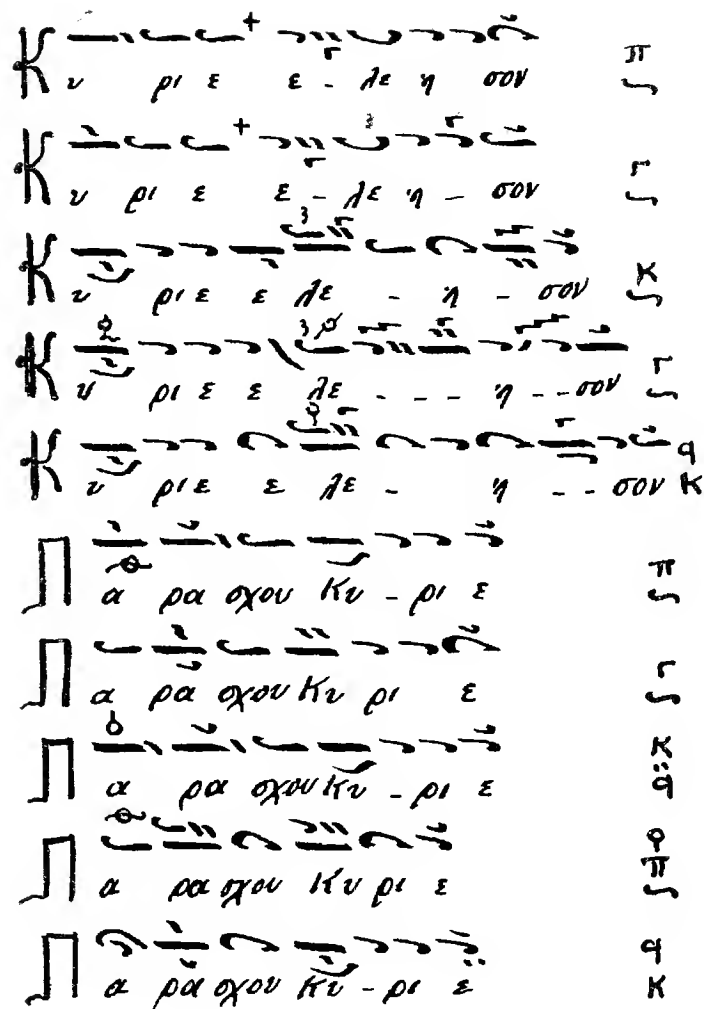 Κυ ρι ε ε - λε η σον π
Κυ ρι ε ε - λε η - σον Γ
Κυ ρι ε ε λε - η - σον κ
Κυ ρι ε ε λε - - - η - - σον Γ
Κυ ρι ε ε λε - η - - σον q κ
Πα ρα σχου Κυ - ρι ε π
Πα ρα σχου Κυ ρι ε Γ
Πα ρα σχου Κυ - ρι ε κ q
Πα ρα σχου Κυ ρι ε π
Πα ρα σχου Κυ - ρι ε q κ